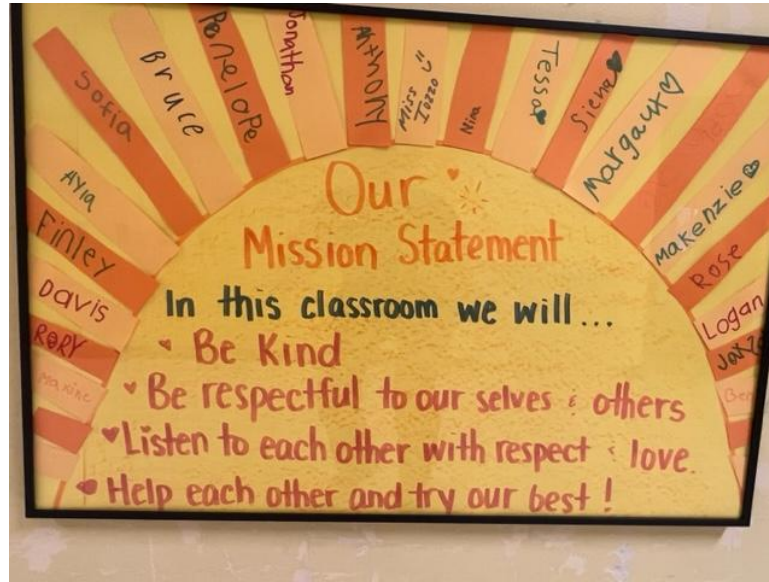 Maxine
RORY
Davis
Finley
Ayla
Sofia
Bruce
Penelope
Jonathan
Anthony
Miss Iozzo
Nina
Tessa
Siena
Margaux
Makenzie
Rose
Logan
Ben
Our
Mission Statement
In this classroom we will...
Be Kind
Be respectful to our selves & others
Listen to each other with respect & love.
Help each other and try our best!